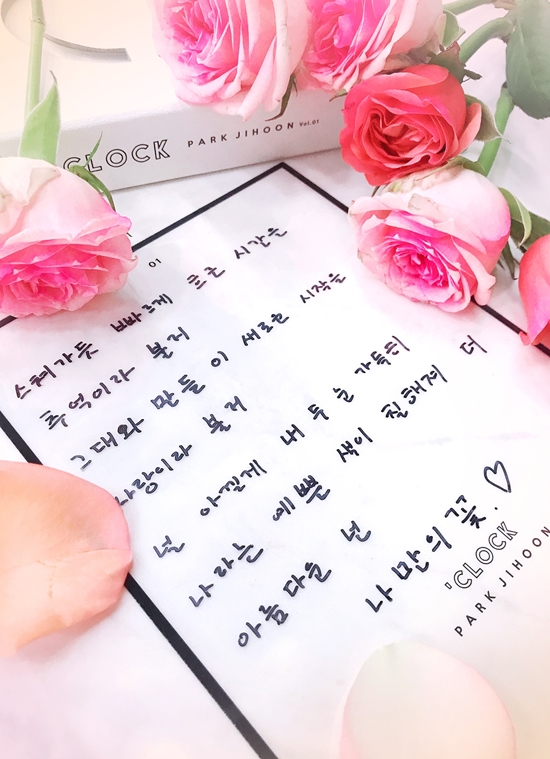 CLOCK PARK JIHOON Vol.01
01
스쳐가듯 빠르게 흐른 시간은
추억이라 불게
그대와 만들 이 새로운 시작을
사랑이라 불게
널 아낄게 내 두 눈 가득히
나라는 예쁜 색이 칠해져 더
아름다운 넌 나만의 꽃.♡
'CLOCK
PARK JIHOON